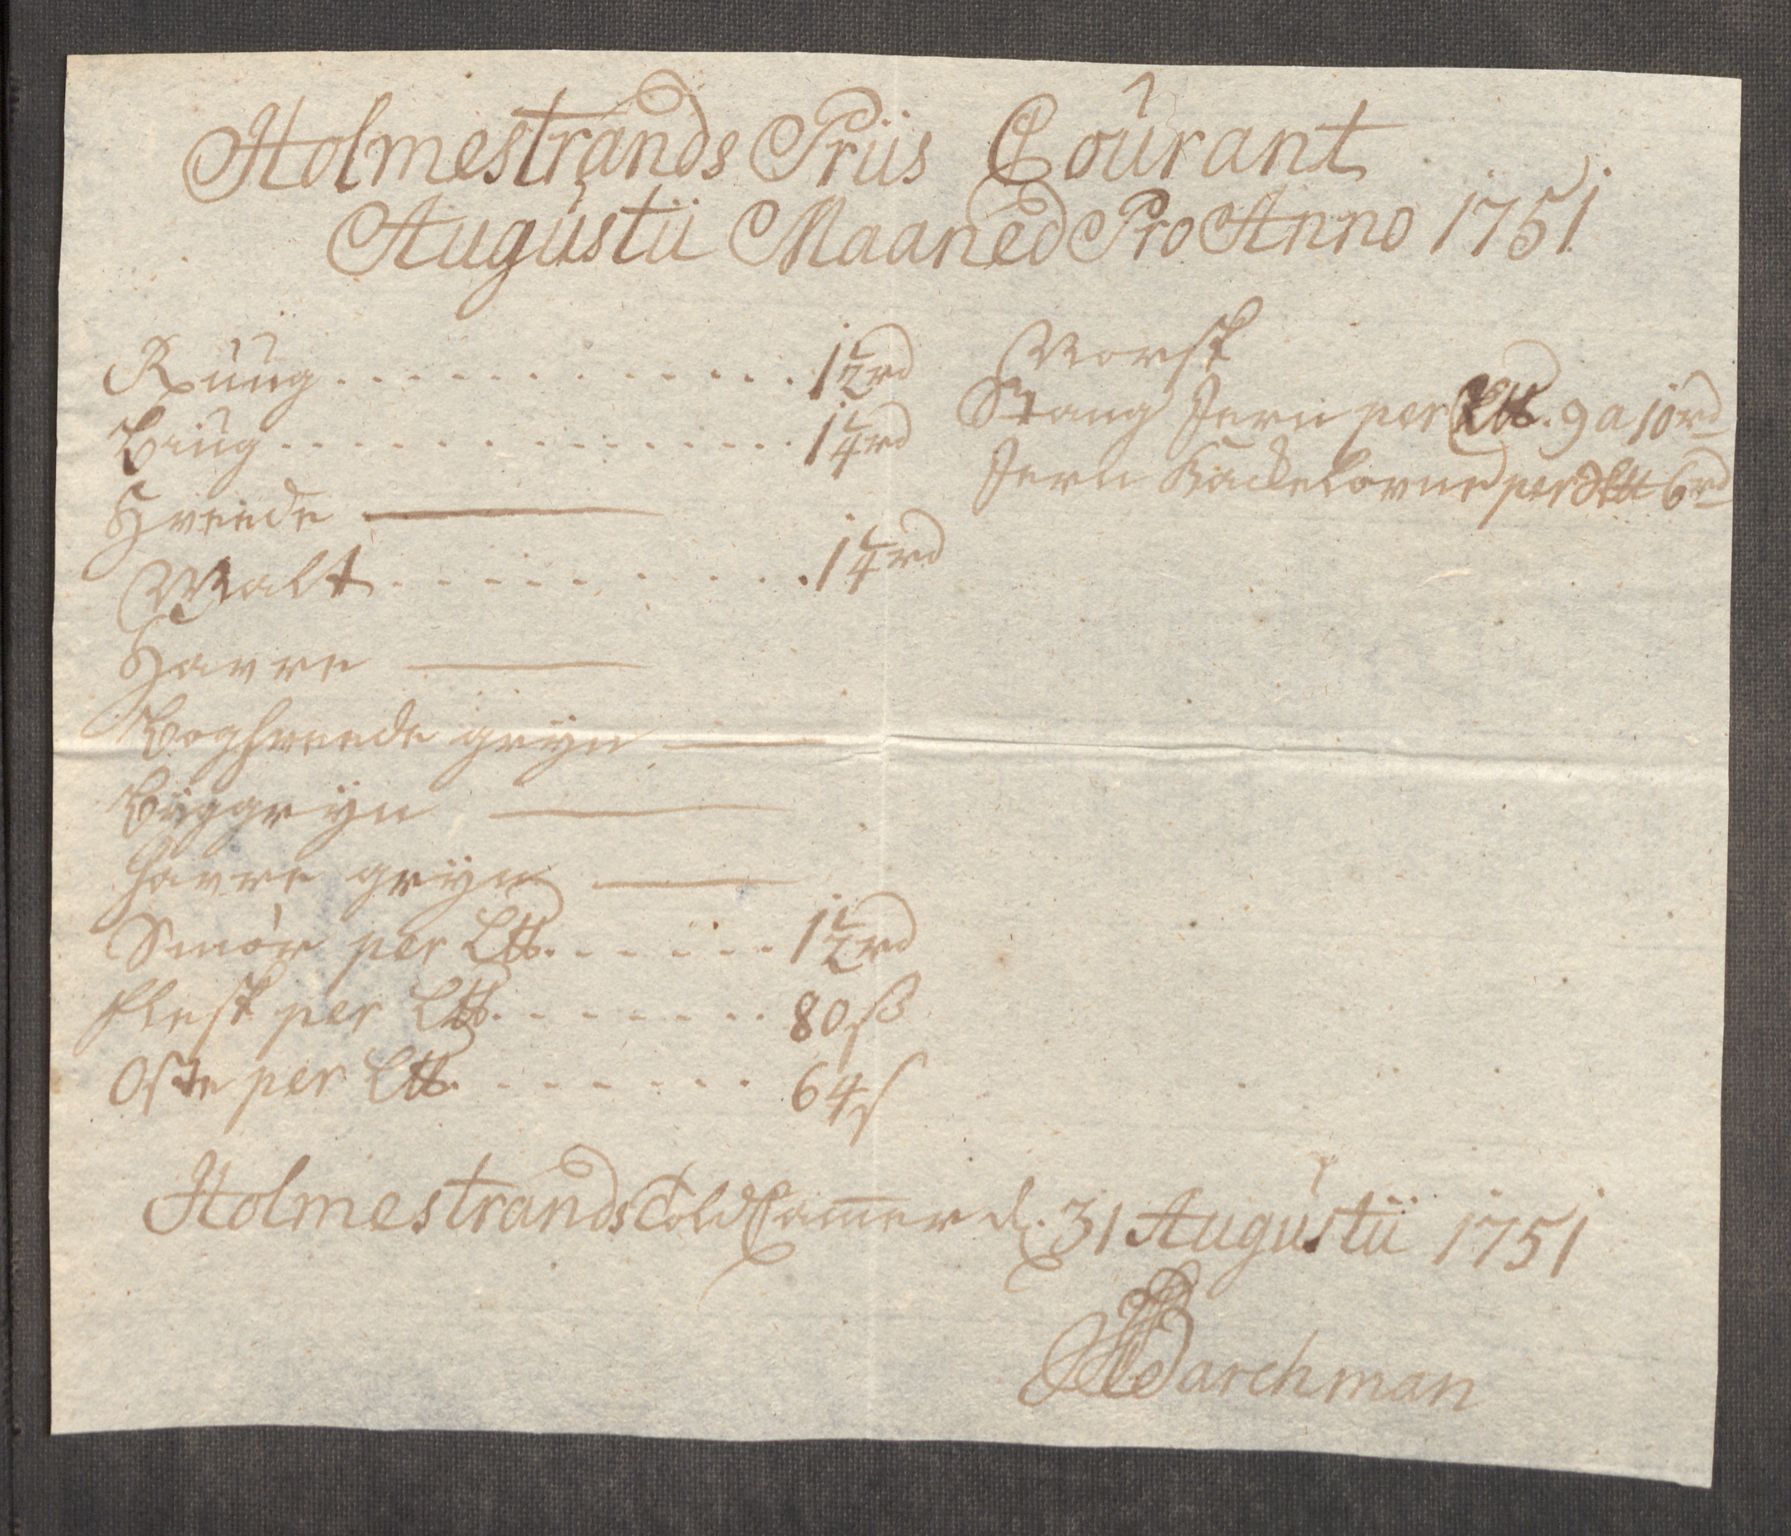 Holmestrands Priis Courant
Augustii Maaned Pro Anno 1751
Ruug . . . . . . . . . . . . 1 1/2 rd
Biug . . . . . . . . . . . . 1 1/4 rd
Hveede ———
Malt . . . . . . . . . . . 1 1/4 rd
Havre ———
Boghveede gryn ———
Byggryn ———
Havre gryn ———
Smør per L℔ . . . . . . 1 1/2 rd
Flesk per L℔ . . . . . . . 80 ß
Oste per L℔ . . . . . . . 64 ß
Norsk
Stang Jern per S℔. 9 a 10 rd
Jern Kackelovne per S℔ 6 rd
Holmestrands Told Camer d. 31 Augustii 1751
Barchman